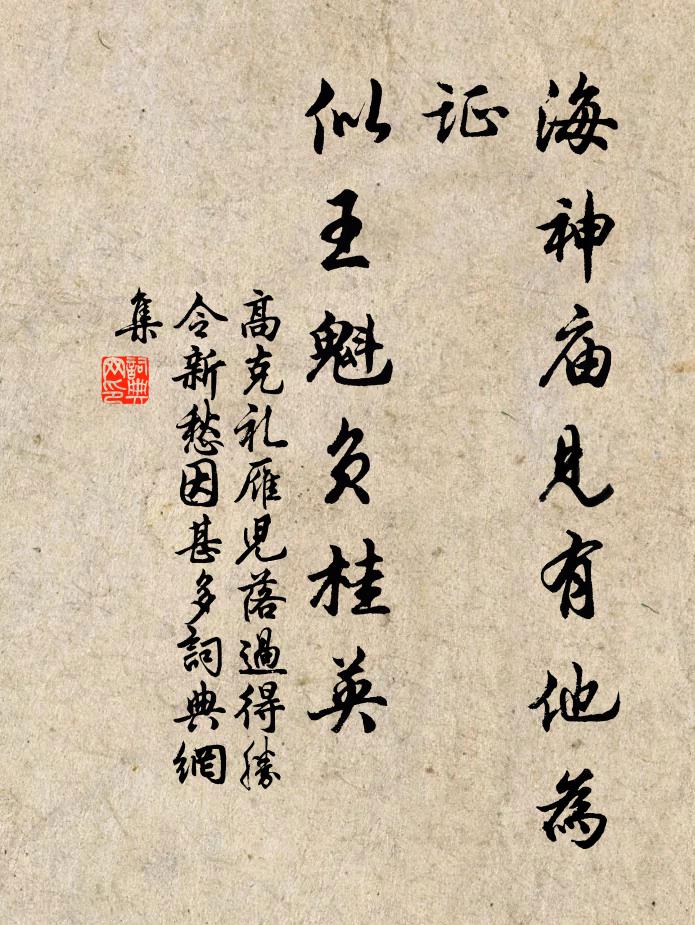 海神庙见有他為
证
似王魁负桂英
高克礼雁児落過得勝
令新愁因甚多詞典網
集
詞典
网印